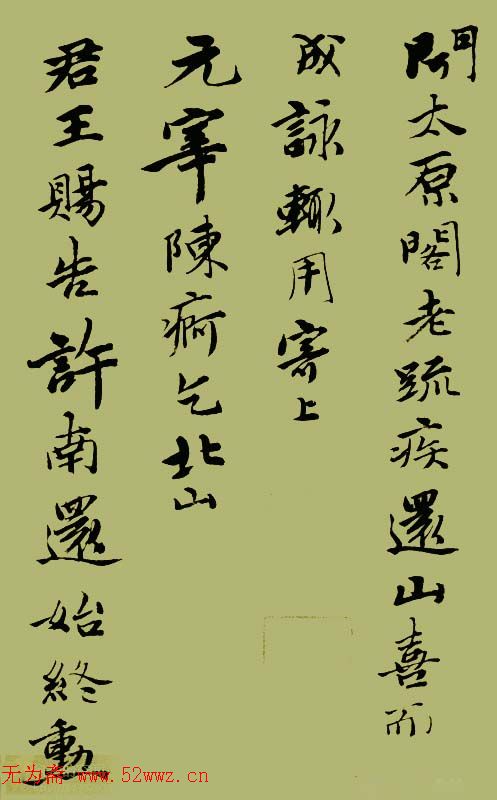 聞太原閣老疏疾還山喜而
成詠輒用寄上
元宰陳痾乞北山
君王賜告許南還始終動
无为斋 www.52wwz.cn